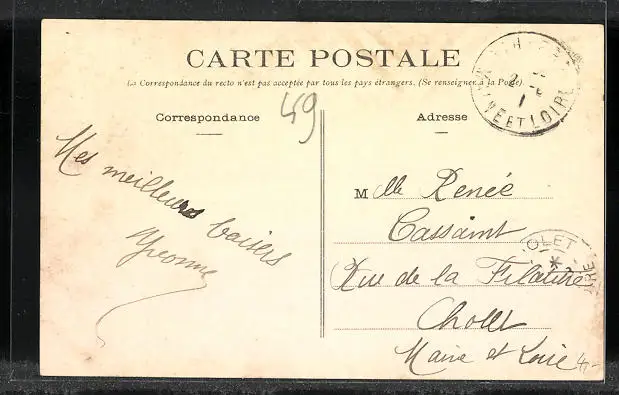 CARTE POSTALE
La Correspondance du recto n'est pas acceptée par tous les pays étrangers. (Se renseigner à la Poste)
49
Correspondance
Adresse
Mes meilleurs baisers
Yvonne
Mlle Renée
Cassaint
Rue de la Filature
Cholet
Maine et Loire
4,-
NE ET LOIRE
OLET